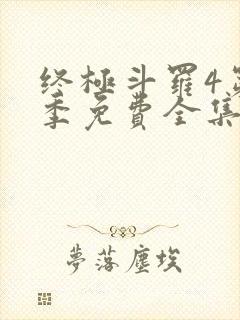 终極斗羅4第
季免費全集
夢落塵埃